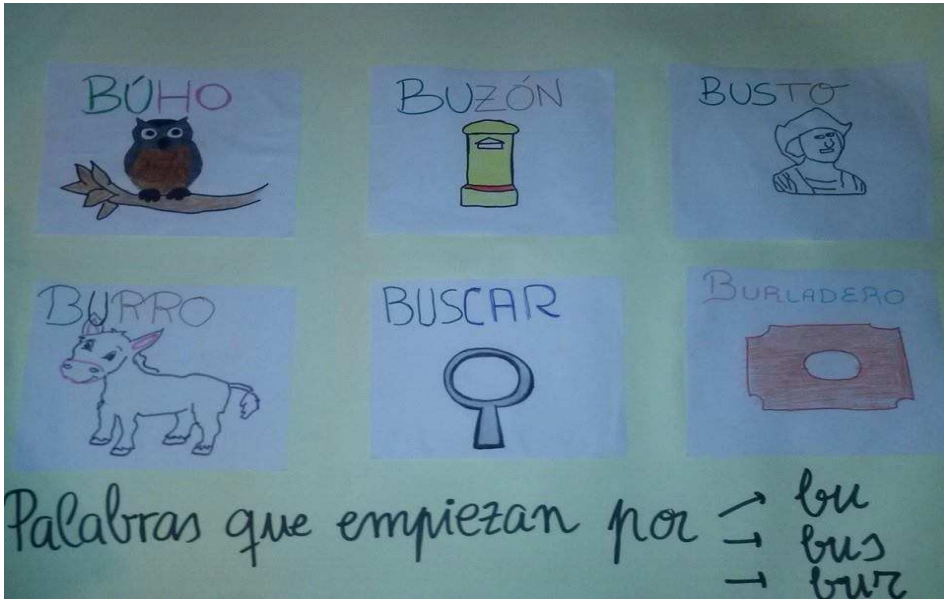 BÚHO
BUZÓN
BUSTO
BURRO
BUSCAR
BURLADERO
Palabras que empiezan por → bu
→ bus
→ bur